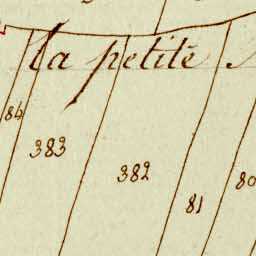 la petite
84
383
382
81
80